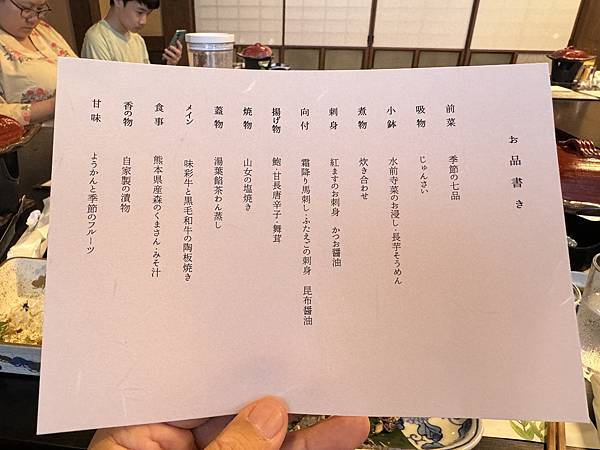 お品書き
前菜　季節の七品
吸物　じゅんさい
小鉢　水前寺菜のお浸し・長芋そうめん
煮物　炊き合わせ
刺身　紅ますのお刺身　かつお醤油
向付　霜降り馬刺し・ふたえごの刺身　昆布醤油
揚げ物　鮑・甘長唐辛子・舞茸
焼物　山女の塩焼き
蓋物　湯葉餡茶わん蒸し
メイン　味彩牛と黒毛和牛の陶板焼き
食事　熊本県産森のくまさん・みそ汁
香の物　自家製の漬物
甘味　ようかんと季節のフルーツ